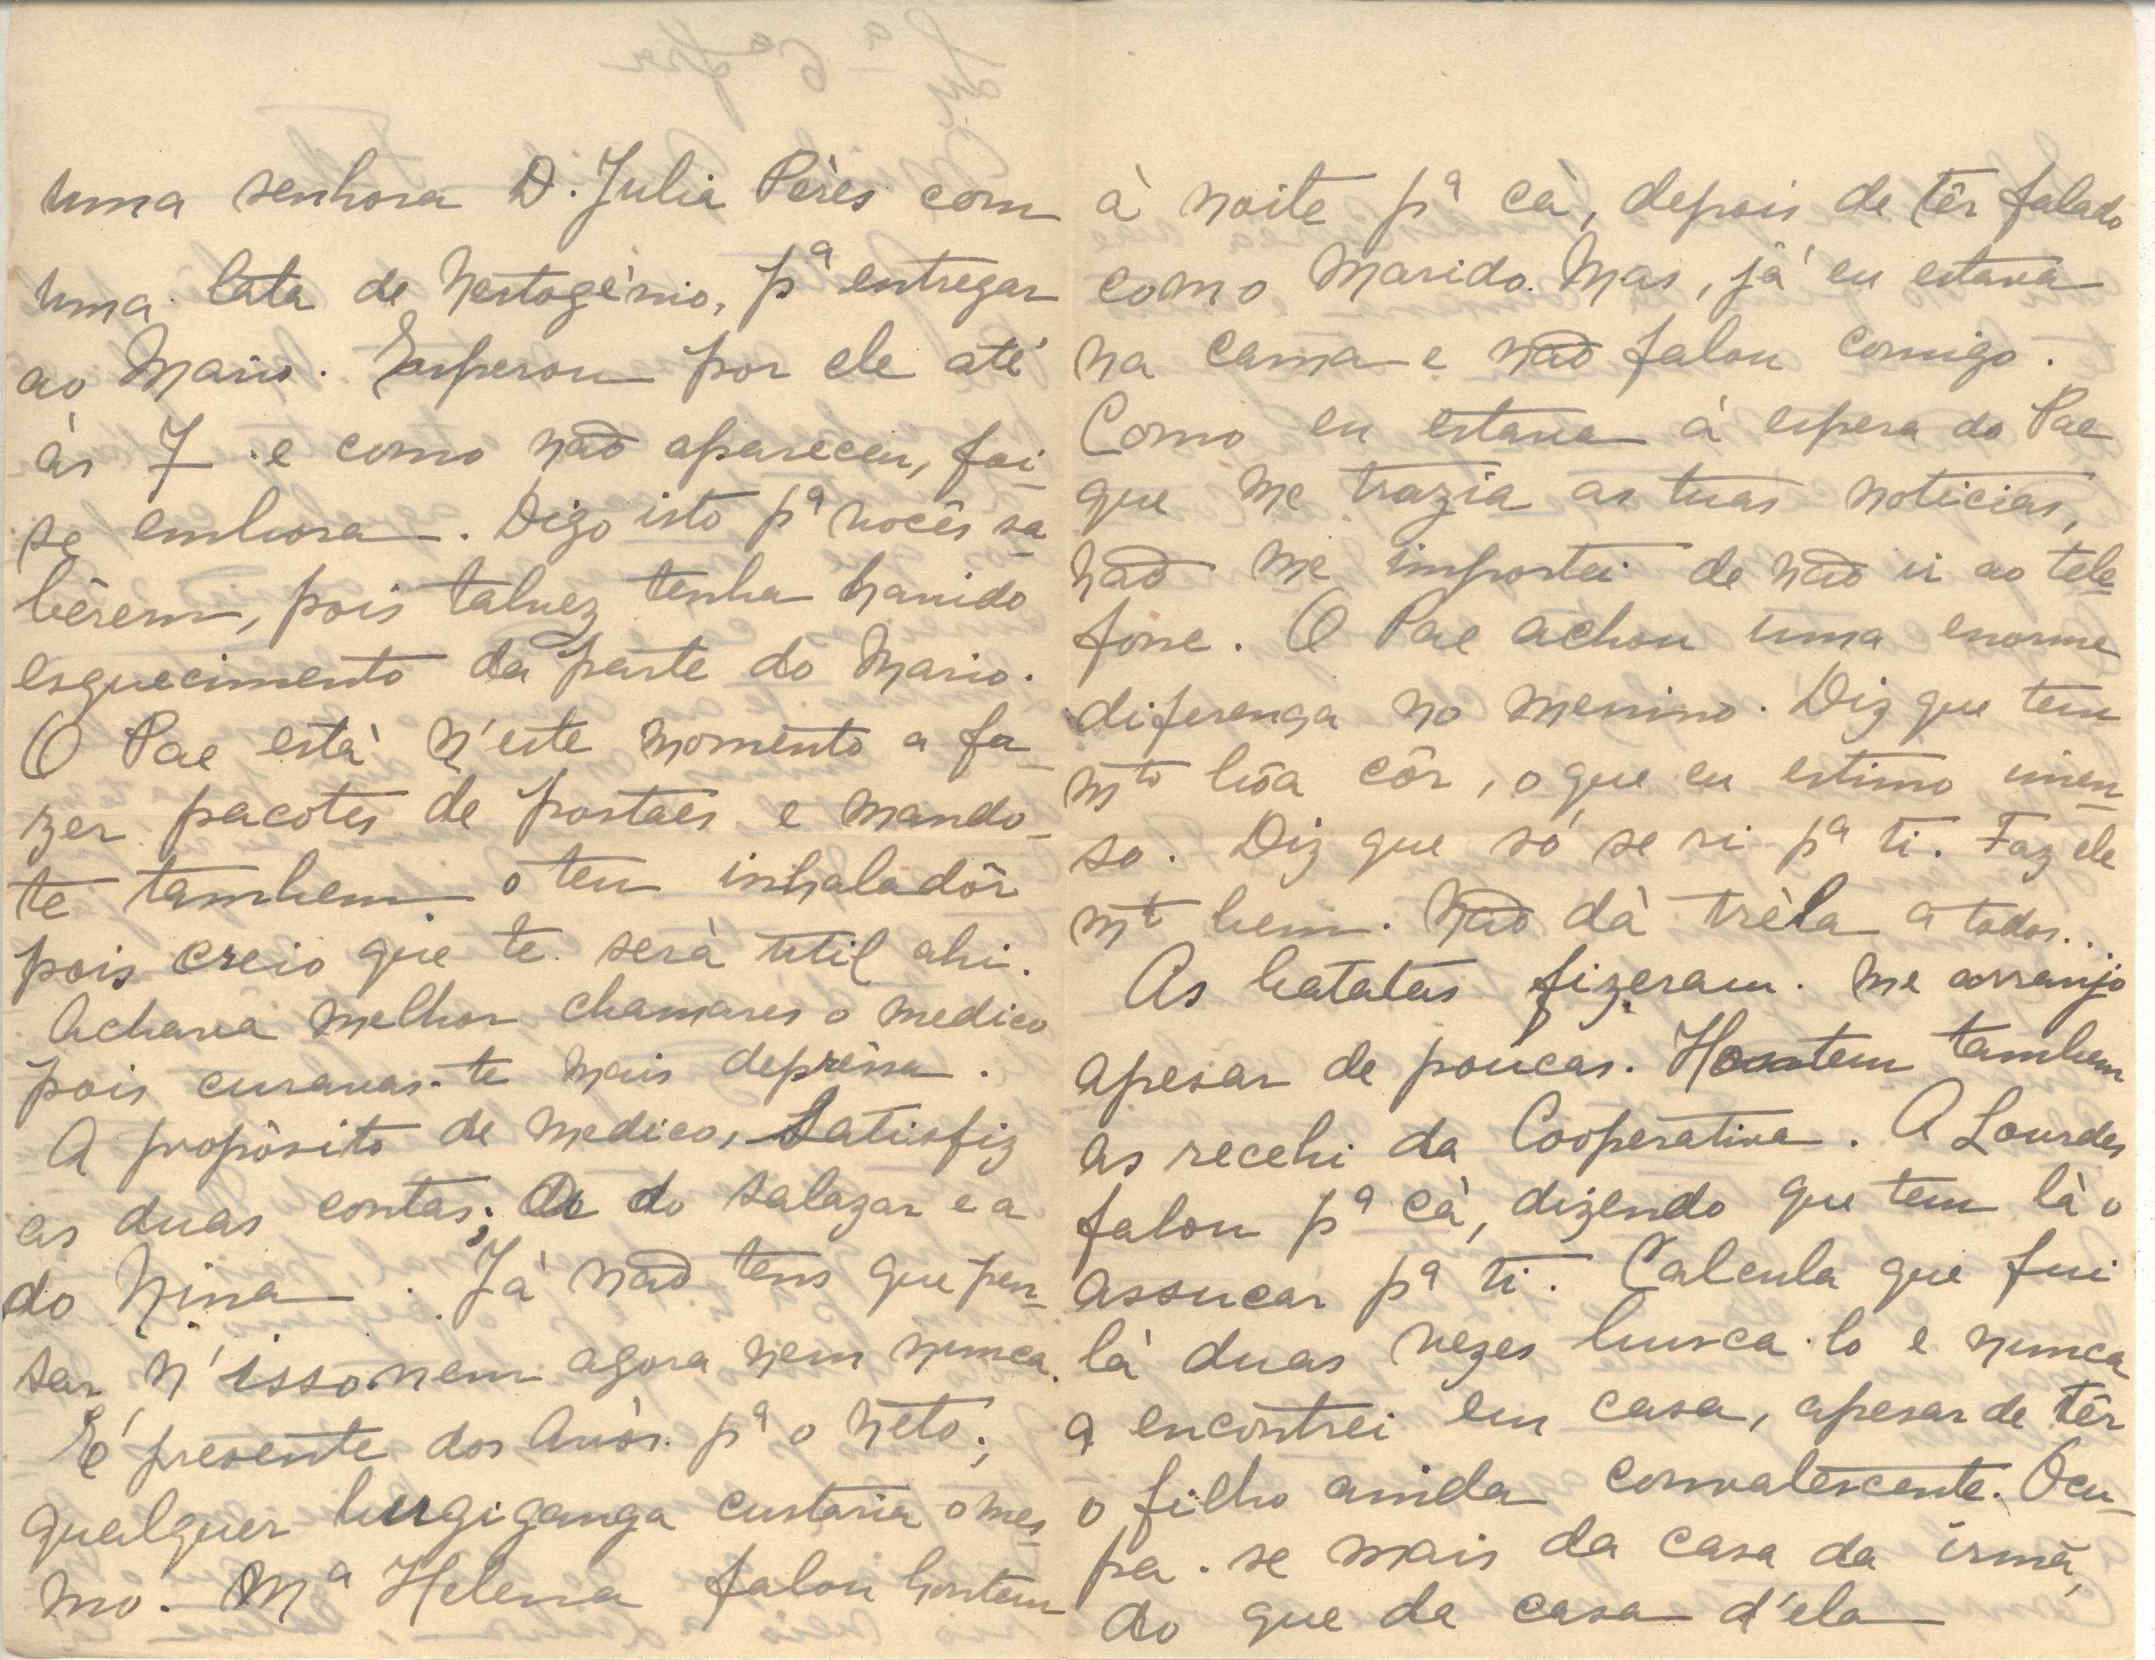 uma senhora D. Julia Pères com
uma lata de Nestogènio, pª entregar
ao Mario. Esperou por ele até
às 7 e como não apareceu, foi-
se embora. Digo isto pª vocês sa-
bêrem, pois talvez tenha havido
esquecimento da parte do Mario.
O Pae està n'este momento a fa-
zer pacotes de postaes e mando-
te tambem o teu inhaladôr
pois creio que te serà util ahi.
Achava melhor chamares o medico
pois curavas-te mais deprêssa.
A propòsito de medico, satisfiz
as duas contas; A do Salazar e a
do Nina. Jà não tens que pen-
sar n'isso nem agora nem nunca.
É presente dos Avòs pª o neto;
qualquer burgiganga custaria o mes-
mo. Mª Helena falou hontem
à noite pª cà, depois de têr falado
com o Marido. Mas, jà eu estava
na cama e não falou comigo.
Como eu estava à espera do Pae
que me trazia as tuas noticias,
não me importei de não ir ao tele-
fone. O Pae achou uma enorme
diferença no menino. Diz que tem
mto bôa côr, o que eu estimo imen-
so. Diz que só se ri pª ti. Faz ele
mto bem. Não dà trèla a todos..
As batatas fizeram-me arranjo
apesar de poucas. Hontem tambem
as recebi da Cooperativa. A Lourdes
falou pª cà, dizendo que tem là o
assucar pª ti. Calcula que fui
là duas vezes busca-lo e nunca
a encontrei em casa, apesar de têr
o filho ainda convalescente. Ocu-
pa-se mais da casa da irmã,
do que da casa d'ela